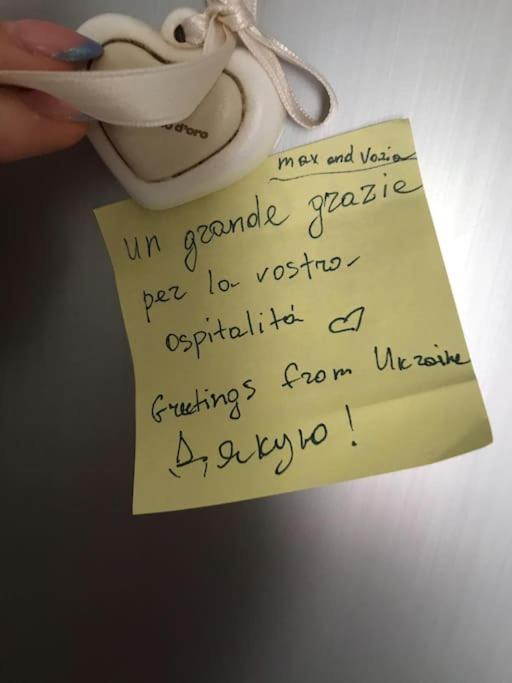 d'oro
max and Vazia
un grande grazie
per la vostra
ospitalitá
Greetings from Ukraine
Дякую!